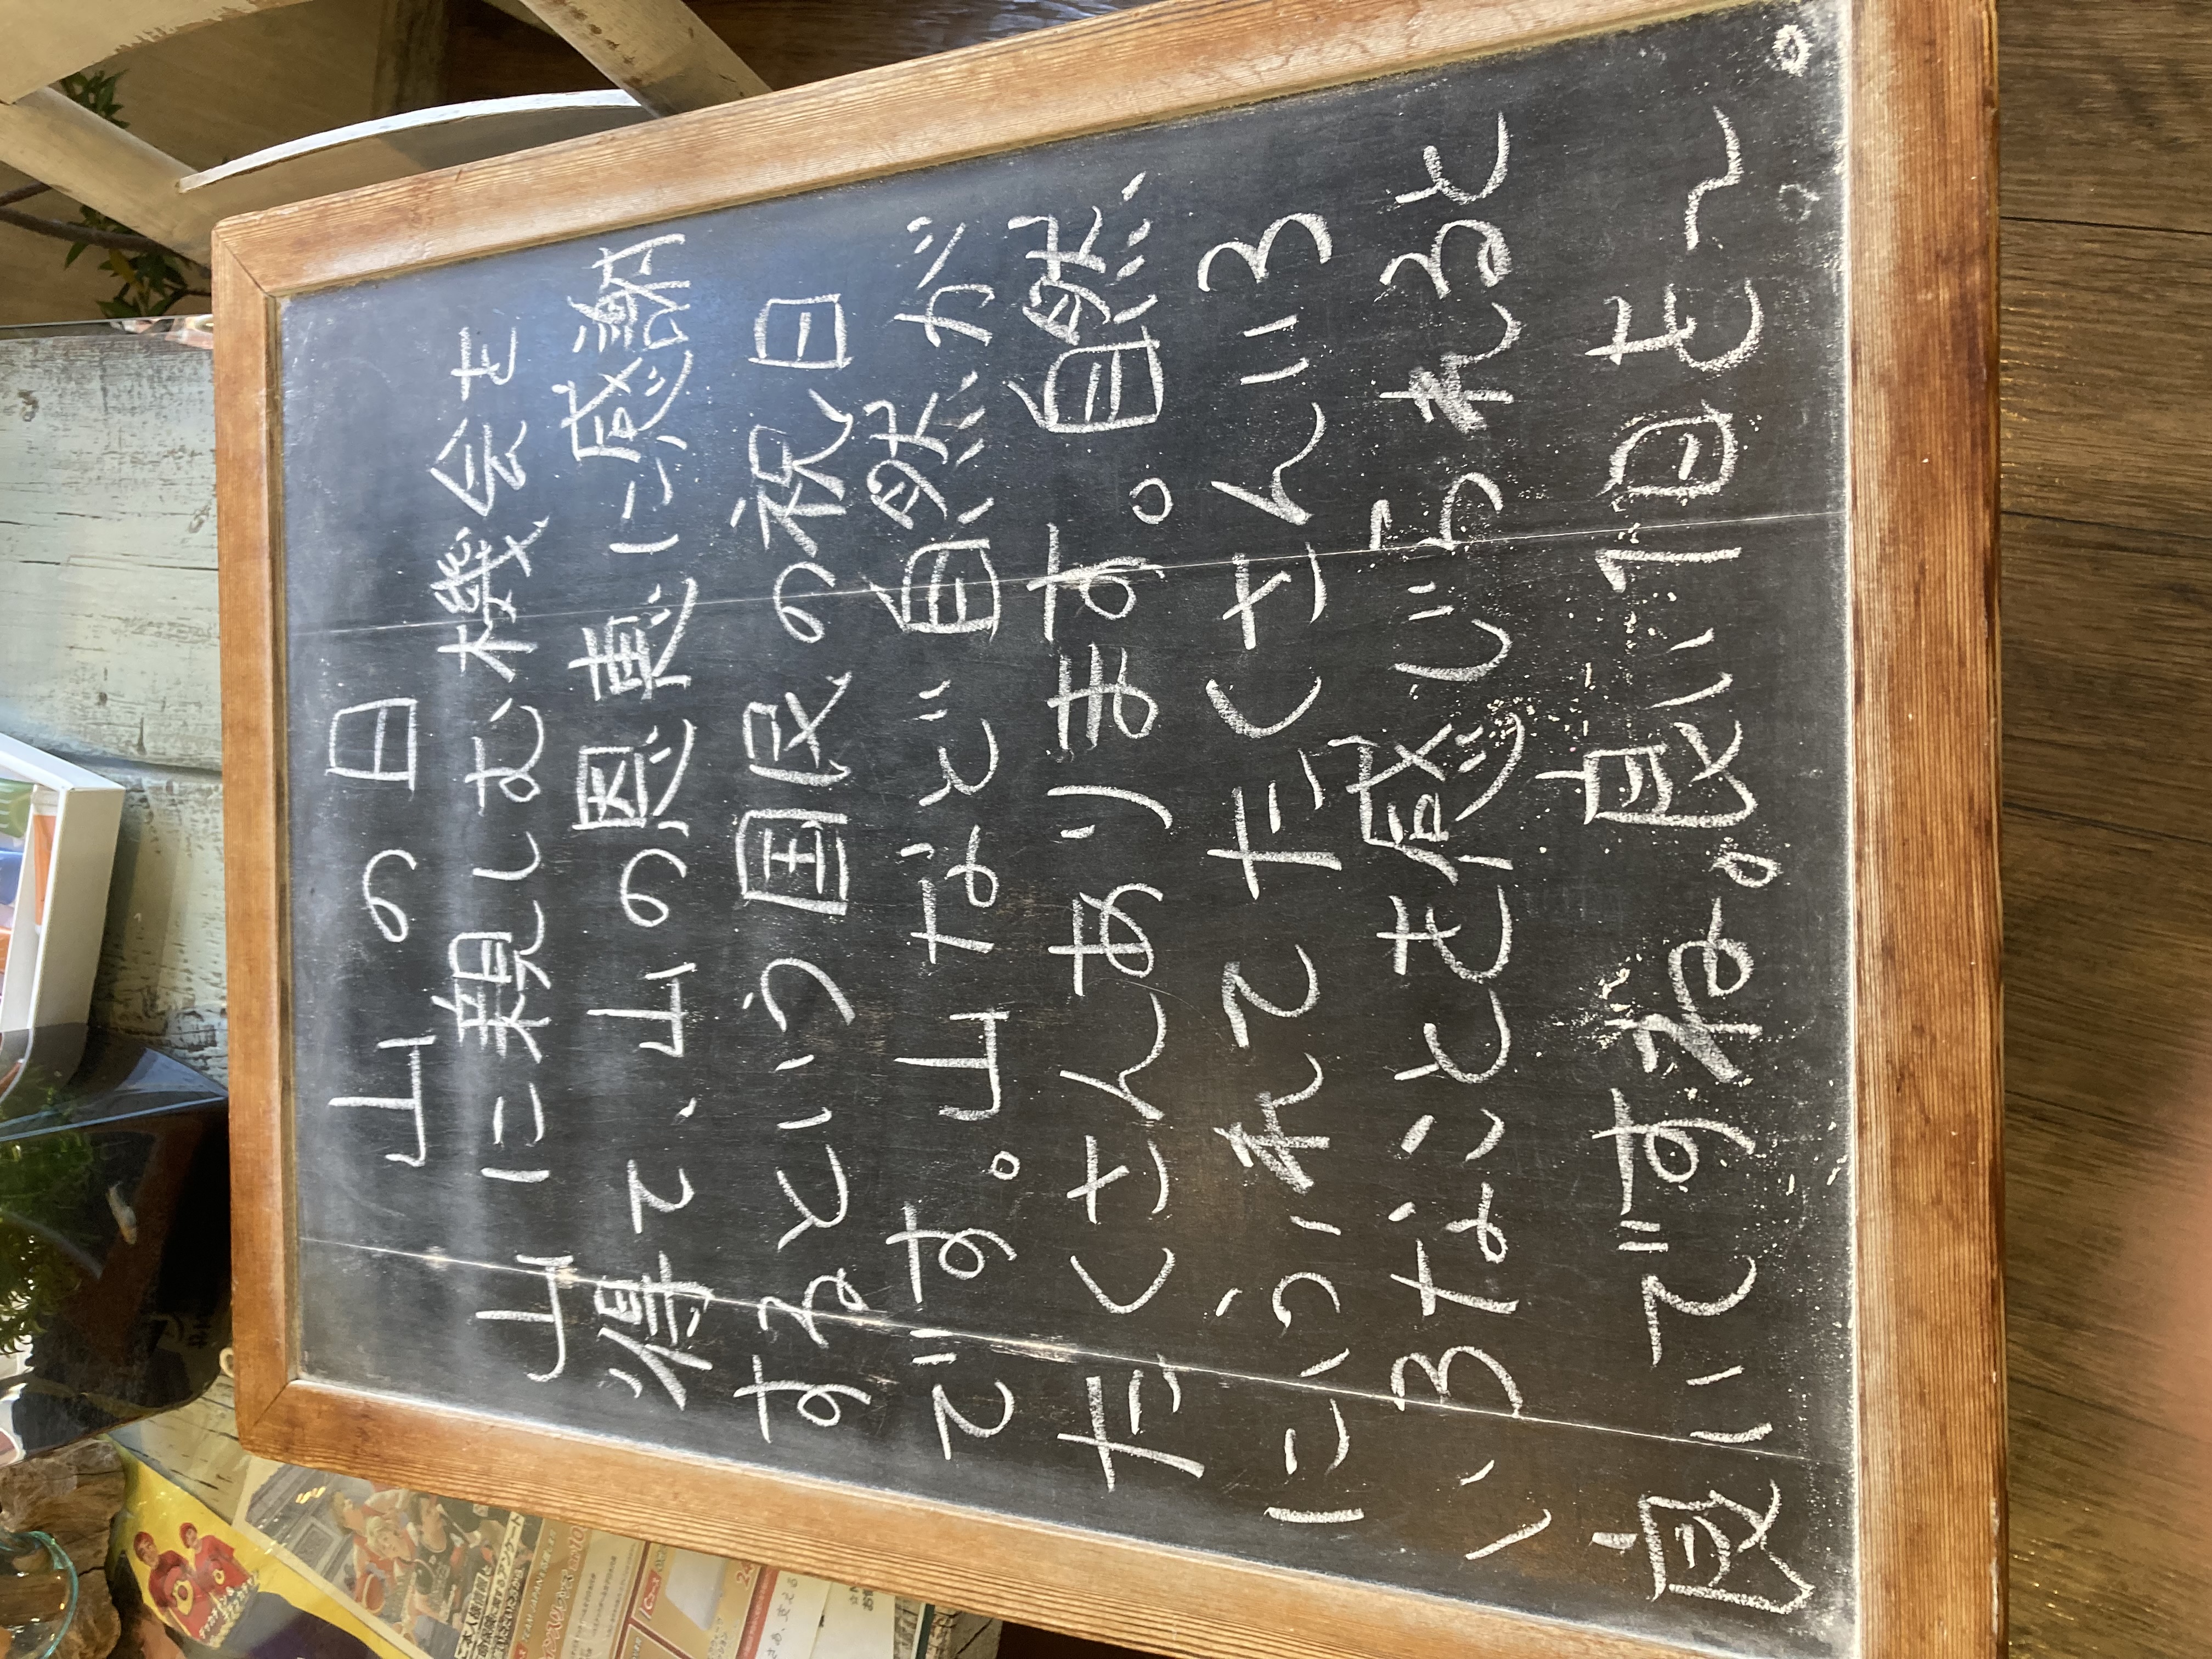 山の日
山に親しむ機会を
得て、山の恩恵に感謝
するという国民の祝日
です。山など自然が
たくさんあります。自然
にふれてたくさんいろ
いろなことを感じられると
良いですね。良い1日を〜。